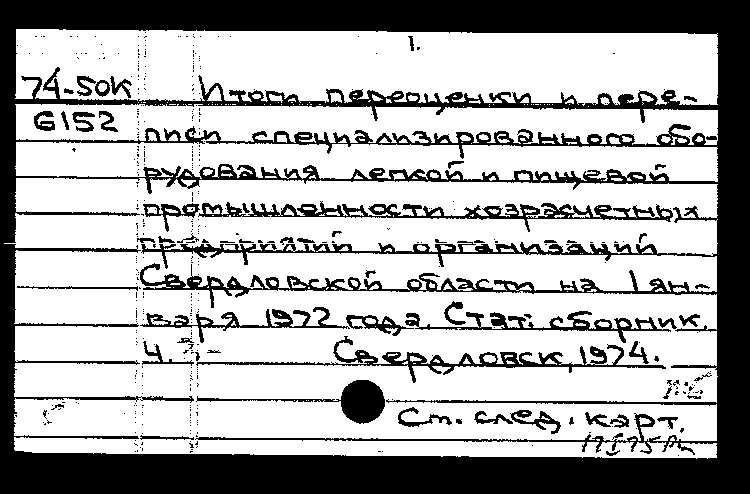 1.
74-50к Итоги переоценки и пере-
6152 писи специализированного обо-
рудования легкой и пищевой
промышленности хозрасчетных
предприятий и организаций
Свердловской области на 1 ян-
варя 1972 года. Стат. сборник.
Ч. 3.- Свердловск, 1974.
См. след. карт.